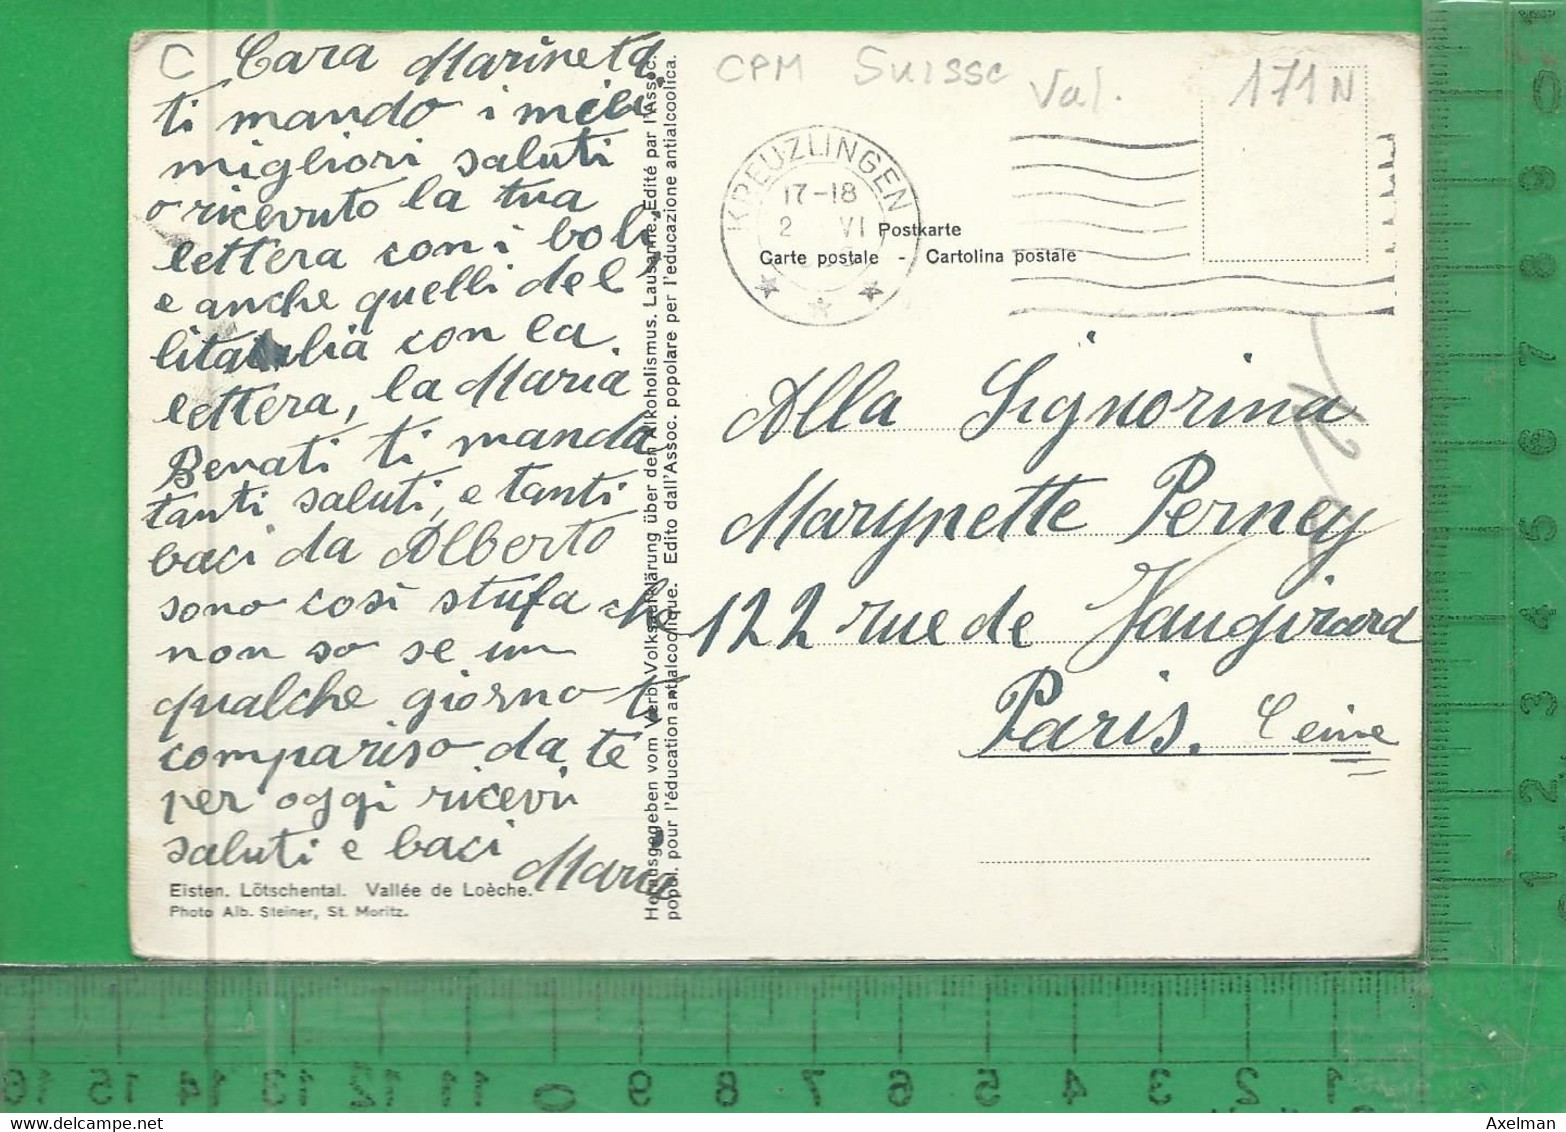 C
Cara Marineta.
ti mando i miei
migliori saluti
o ricevuto la tua
lettera con i boli,
e anche quelli del
litalia con la
lettera, la Maria
Benati ti manda
tanti saluti, e tanti
baci da Alberto
sono così stufa che
non so se un
qualche giorno ti
compariso da te
per oggi ricevi
saluti e baci
Maria
Eisten. Lötschental. Vallée de Loèche.
Photo Alb. Steiner, St. Moritz.
Herausgegeben vom Verb. Volksaufklärung über den Alkoholismus. Lausanne. Edité par l'Assoc.
popul. pour l'éducation antialcoolique. Edito dall'Assoc. popolare per l'educazione antialcoolica.
CPM Suisse Val.
171N
KREUZLINGEN
17-18
2 VI
Postkarte
Carte postale - Cartolina postale
Alla Signorina
Marynette Perney
122 rue de Vaugirard
Paris. Ceine
0
9
8
7
6
5
4
3
2
1
16 15 14 13 12 11 0 9 8 7 6 5 4 3 2 1
www.delcampe.net
Axelman